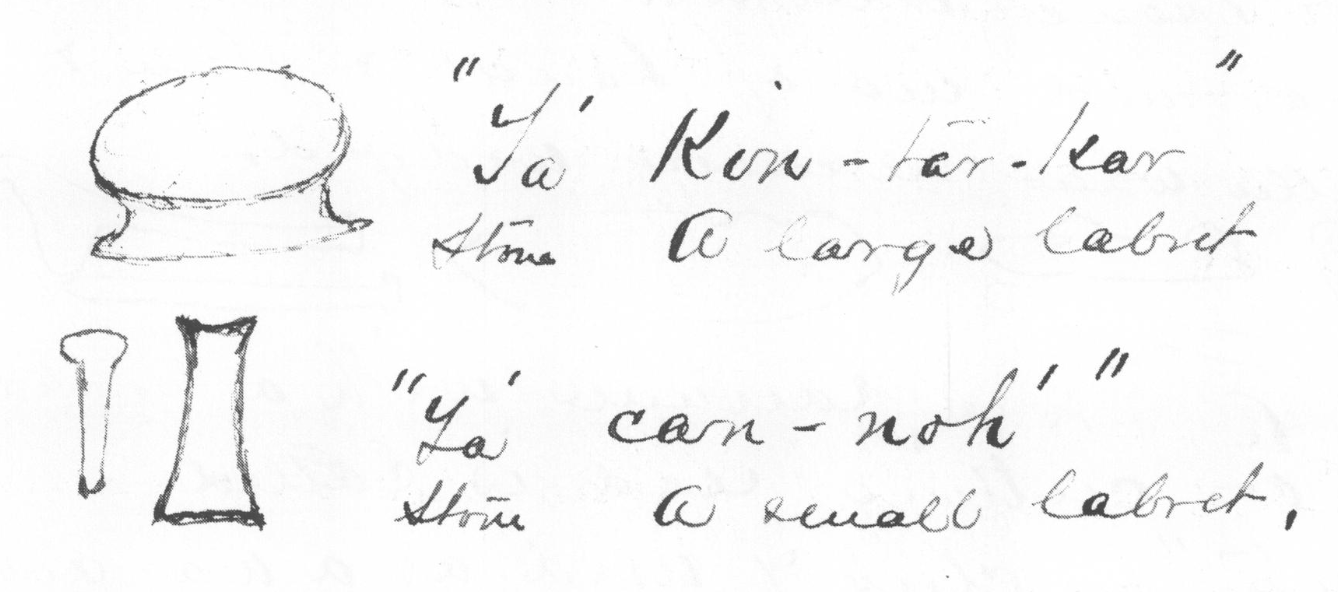 "Ya' Kon-tar-kar"
Stone A large labret
"Ya' can-noh'"
Stone A small labret.